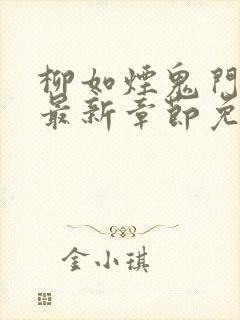 柳如煙鬼門
最新章節免
金小琪